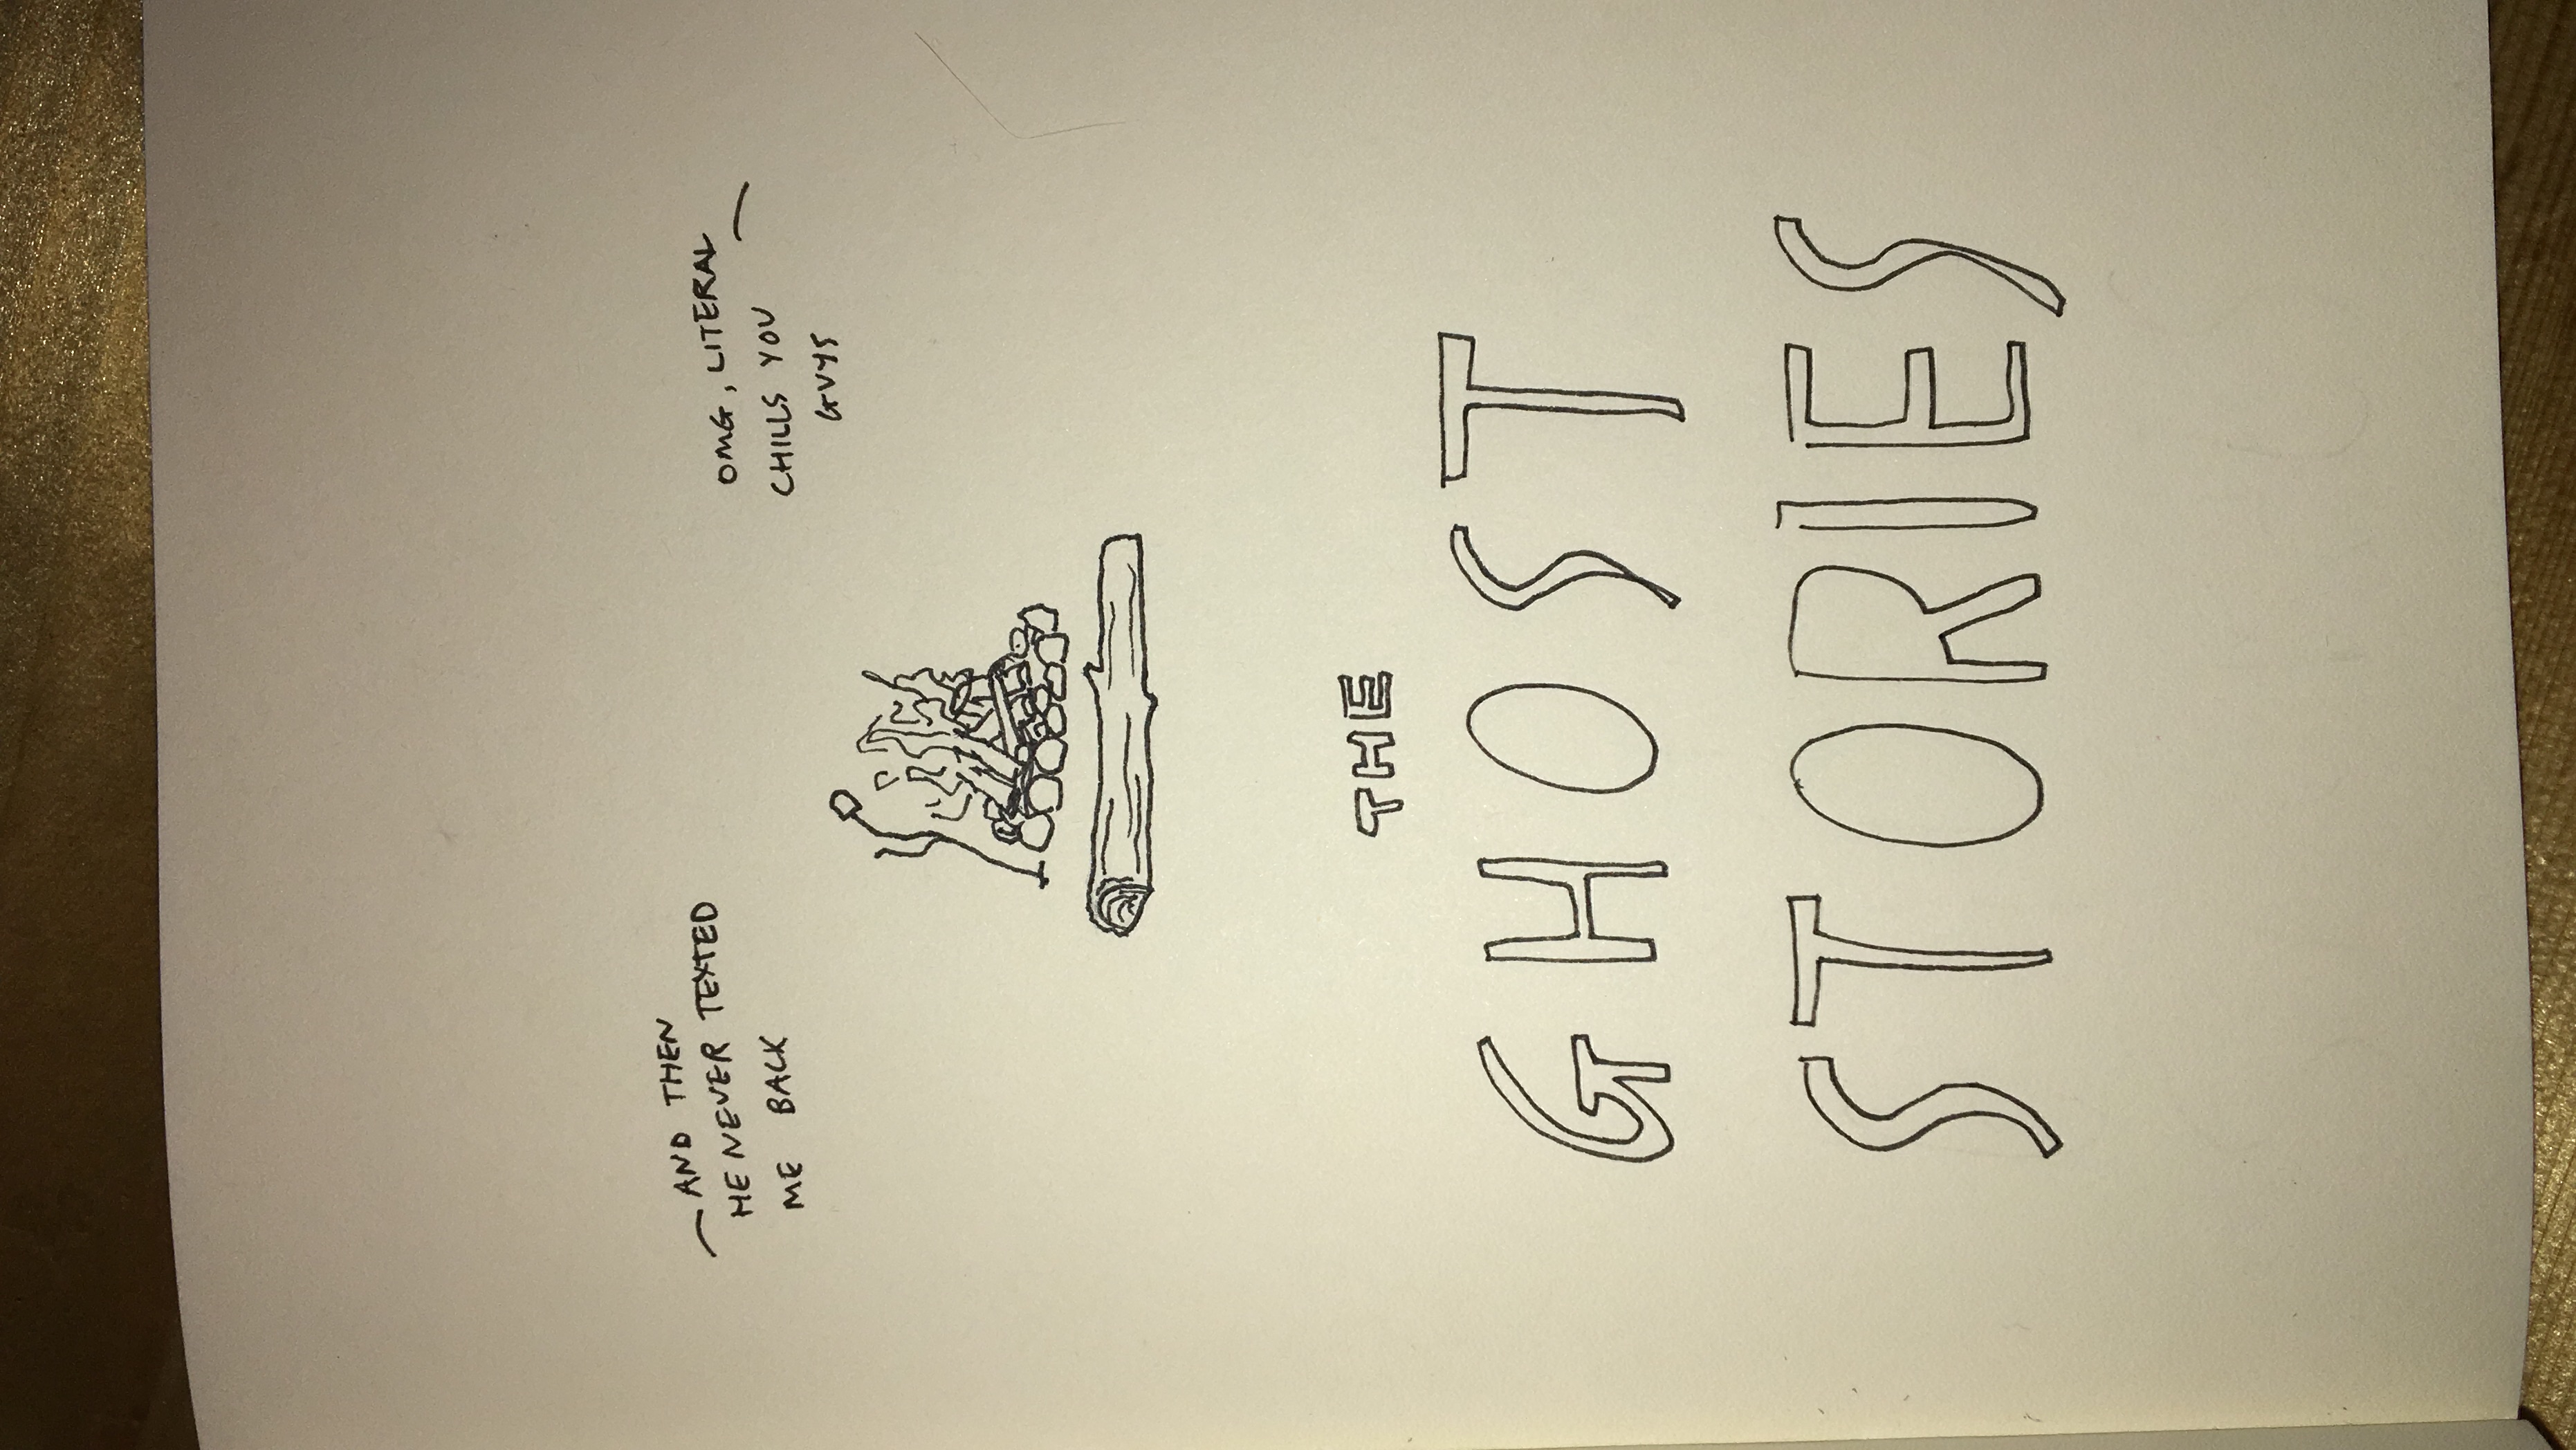 AND THEN
HE NEVER TEXTED
ME BACK
OMG, LITERAL
CHILLS YOU
GUYS
THE
GHOST
STORIES